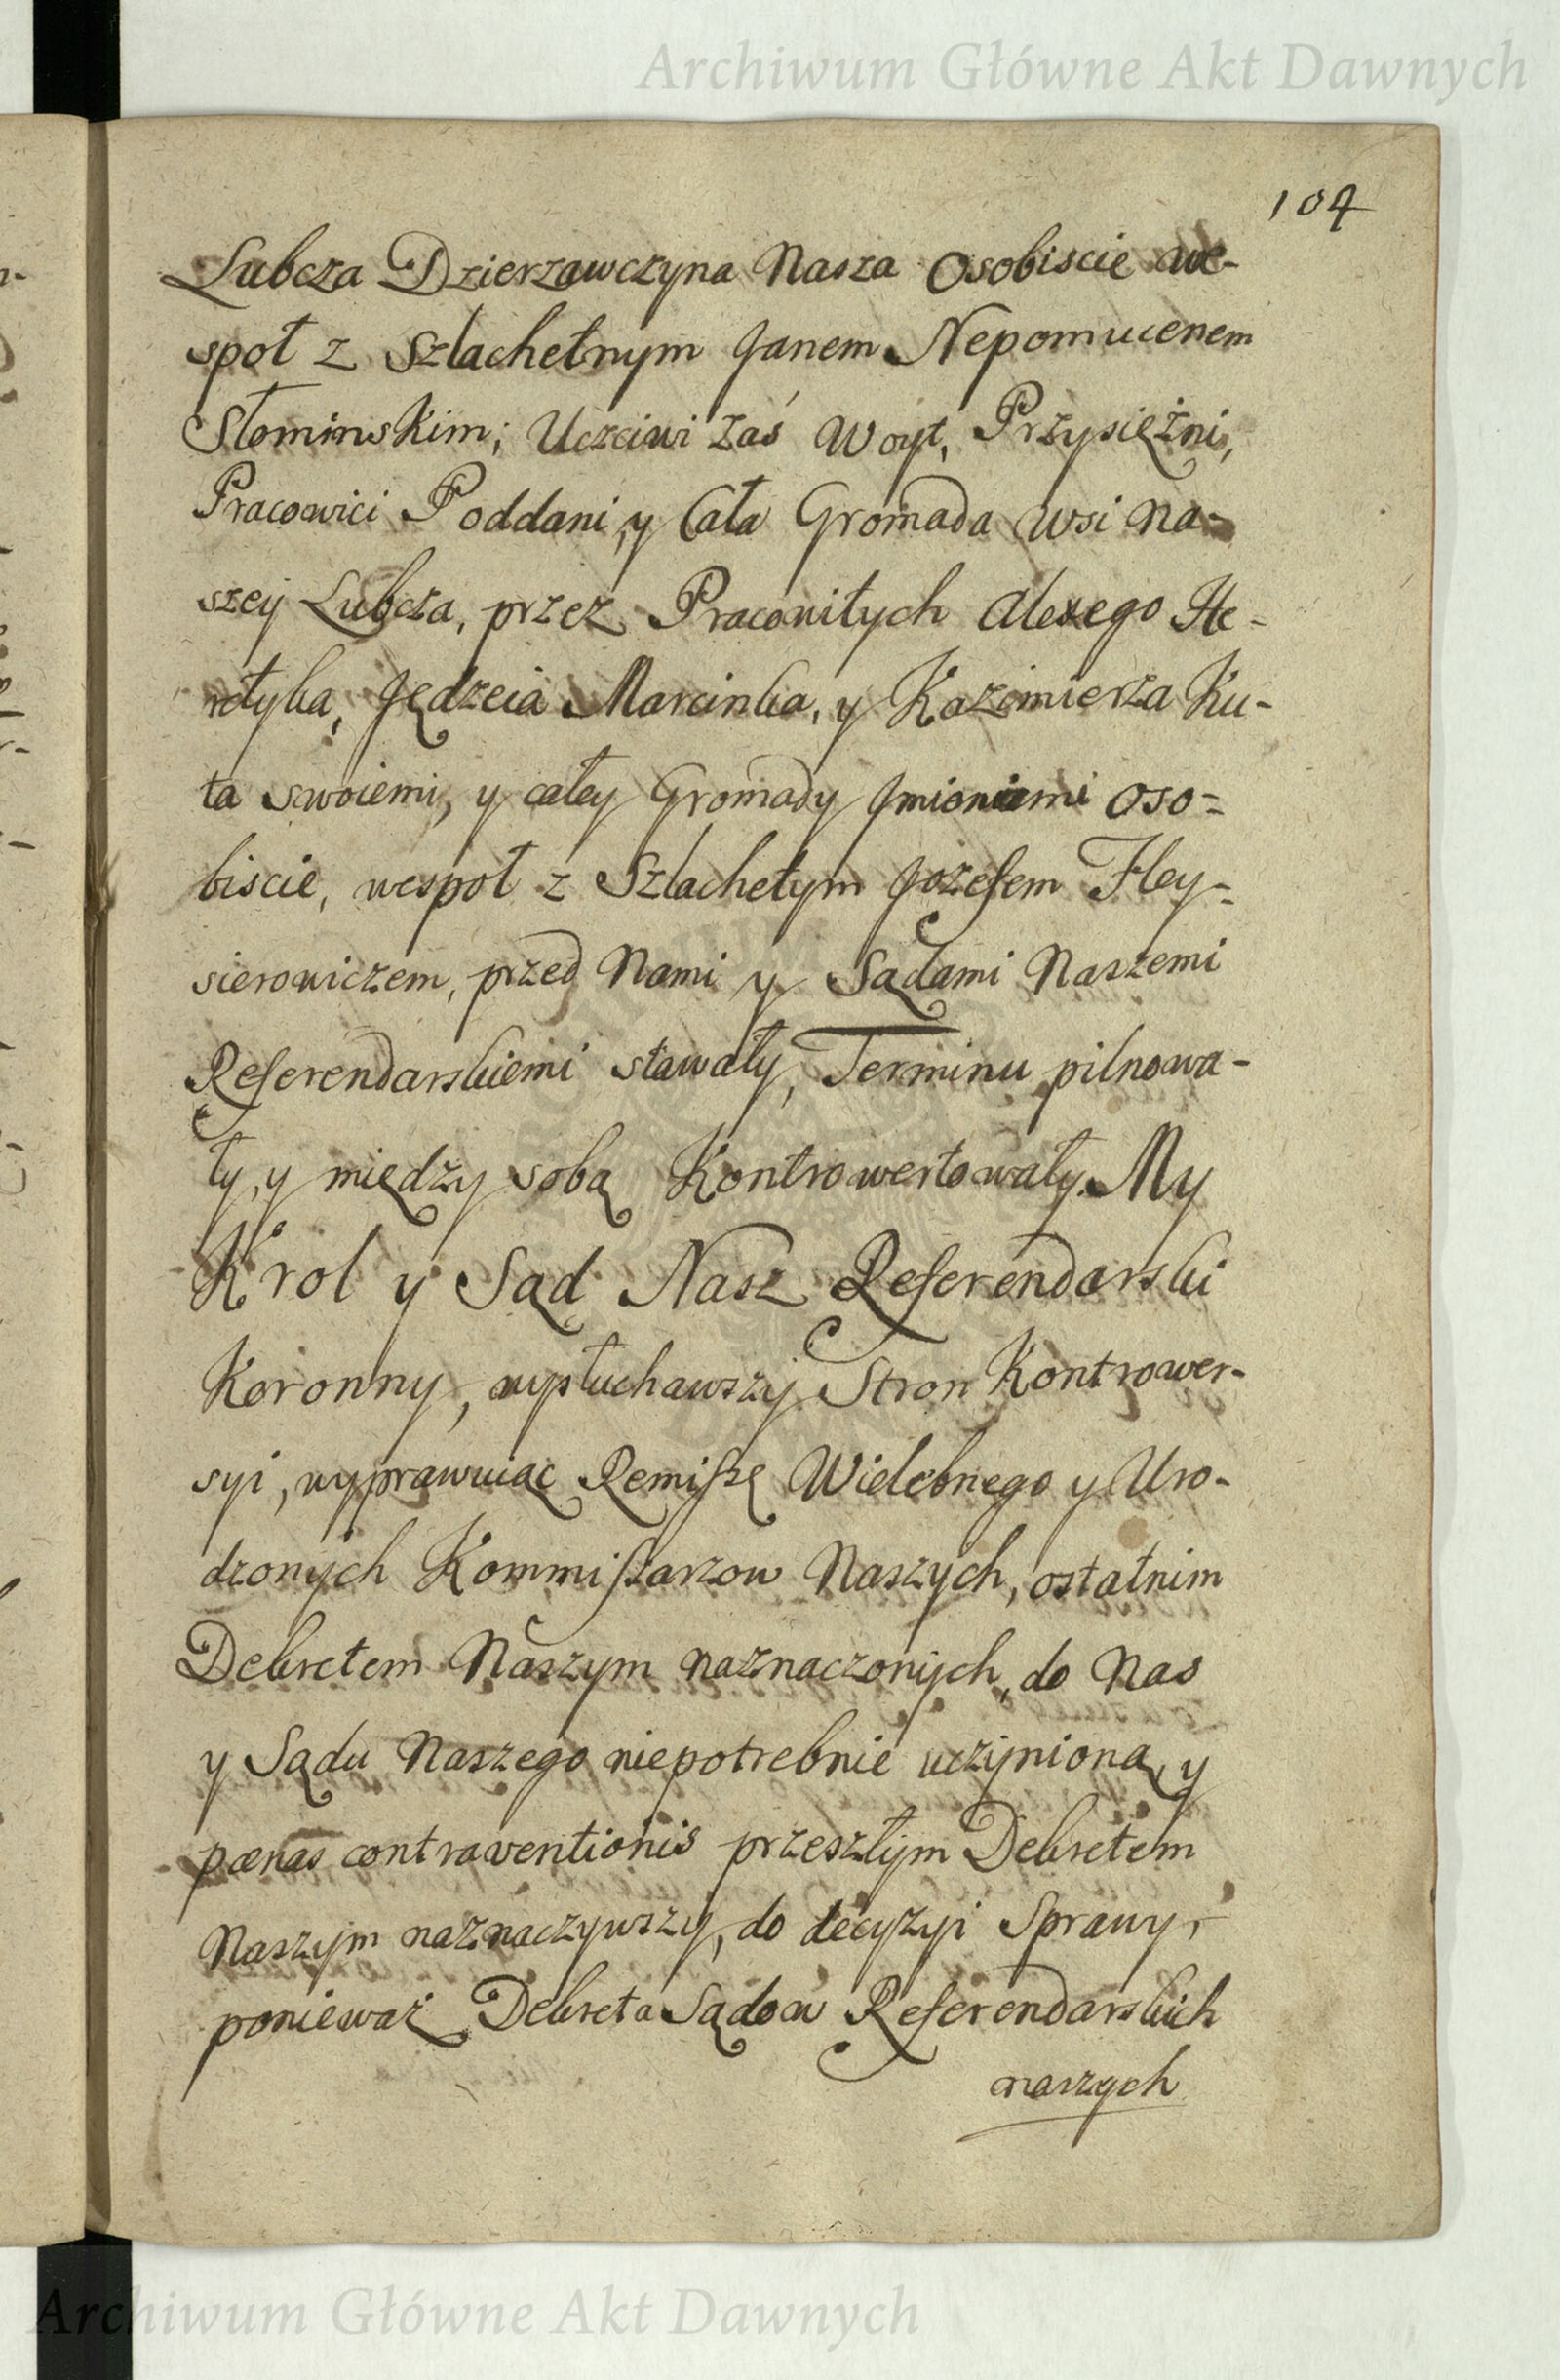 Archiwum Główne Akt Dawnych
104
Lubcza Dzierzawczyna Nasza Osobiscie we-
społ z Szlachetnym Janem Nepomucenem
Słominskim; Uczciwi zaś Woyt, Przysiężni,
Pracowici Poddani, y Cała Gromada wsi na-
szey Lubcza, przez Pracowitych Alexego He-
retyka, Jędrzeia Marcinka, y Kazimierza Ku-
ta swoiemi, y całey Gromady Jmioniami oso-
biscie, wespoł z Szlachetym Jozefem Fley-
sierowiczem, przed Nami y Sądami Naszemi
Referendarskiemi stawały, Terminu pilnowa-
ły, y między sobą Kontrowertowały. My
Krol y Sąd Nasz Referendarski
Koronny, wysłuchawszy Stron Kontrower-
syi, wyprawuiąc Remiſsę Wielebnego y Uro-
dzonych Kommiſsarzow Naszych, ostatnim
Dekretem Naszym naznaczonych, do Nas
y Sądu Naszego niepotrebnie uczynioną, y
pœnas contraventionis przeszłym Dekretem
Naszym naznaczywszy, do decyzyi Sprawy,
ponieważ Dekreta Sądow Referendarskich
naszych
Archiwum Główne Akt Dawnych